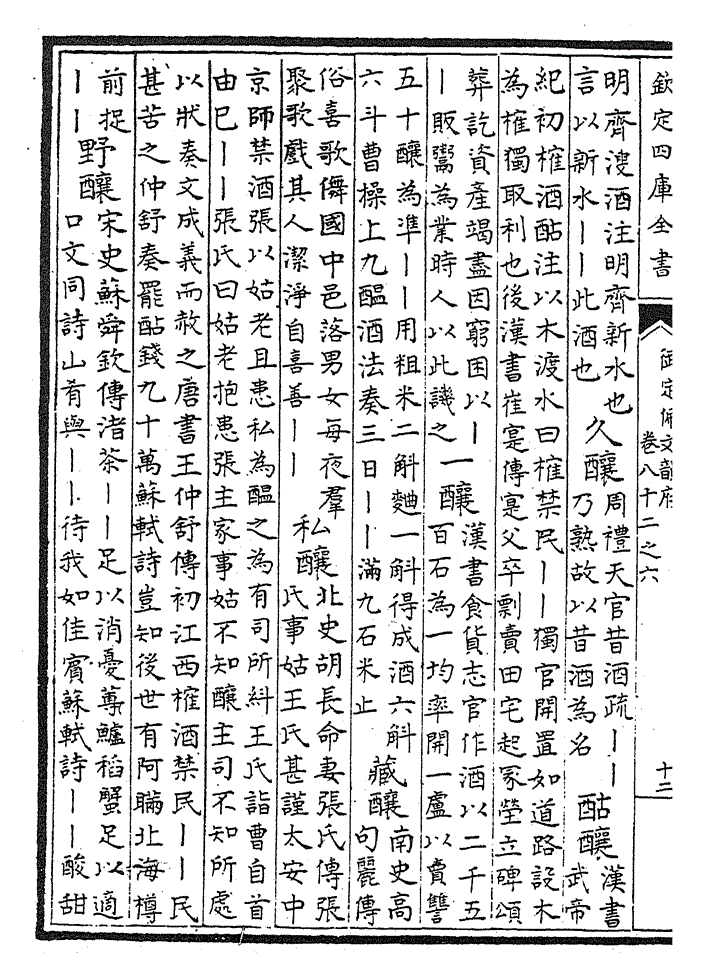 欽定四庫全書
御定佩文韻府
卷八十二之六
十二
明齊溲酒注明齊新水也
言以新水丨丨此酒也
久釀
周禮天官昔酒疏丨丨
乃熟故以昔酒為名
酤釀
漢書
武帝
紀初榷酒酤注以木渡水曰榷禁民丨丨獨官開置如道路設木
為榷獨取利也後漢書崔寔傳寔父卒剽賣田宅起冢塋立碑頌
葬訖資產竭盡因窮困以丨
丨販鬻為業時人以此譏之
一釀
漢書食貨志官作酒以二千五
百石為一均率開一盧以賣讐
五十釀為準丨丨用粗米二斛麯一斛得成酒六斛
六斗曹操上九醞酒法奏三日丨丨滿九石米止
藏釀
南史高
句麗傳
俗喜歌儛國中邑落男女每夜羣
聚歌戲其人潔淨自喜善丨丨
私釀
北史胡長命妻張氏傳張
氏事姑王氏甚謹太安中
京師禁酒張以姑老且患私為醞之為有司所糾王氏詣曹自首
由巳丨丨張氏曰姑老抱患張主家事姑不知釀主司不知所處
以狀奏文成義而赦之唐書王仲舒傳初江西榷酒禁民丨丨民
甚苦之仲舒奏罷酤錢九十萬蘇軾詩豈知後世有阿瞞北海樽
前捉
丨丨
野釀
宋史蘇舜欽傳渚茶丨丨足以消憂蓴鱸稻蟹足以適
口文同詩山肴與丨丨待我如佳賓蘇軾詩丨丨酸甜